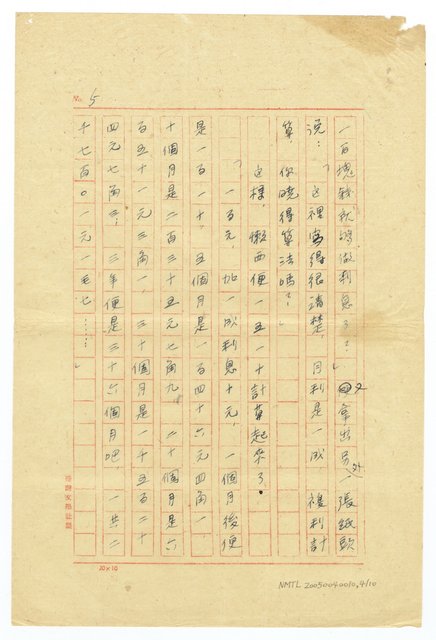 No. 5
一百塊錢就够做利息了？」又拿出另外一張紙歀
説：「这裡寫得很清楚，月利是一成，複利計
算，你曉得算法嗎？」
这樣，懶西便一五一十計算起來了。
「一百元，加一成利息十元，一個月後便
是一百一十，五個月是一百四十六元四角一，
十個月是二百三十五元七角九，二十個月是六
百五十一元三角一，三十個月是一千五百二十
四元七角三，三年便是三十六個月吧，一共二
千七百〇一元一毛七……」
20×10
NMTL 20050040010, 4/10